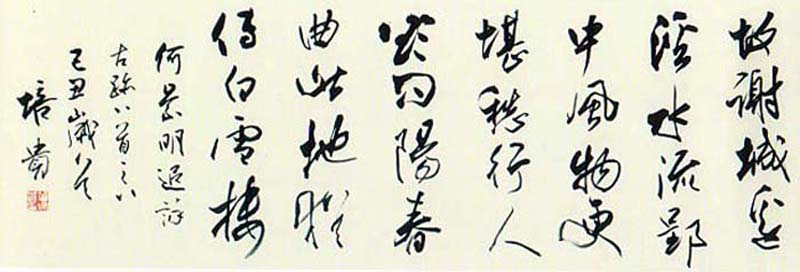 故謝城邊
溪水流郢
中風物更
堪愁行人
欲問陽春
曲此地
傳白雪樓
何景明
古跡八首之八
己丑歲
培貴